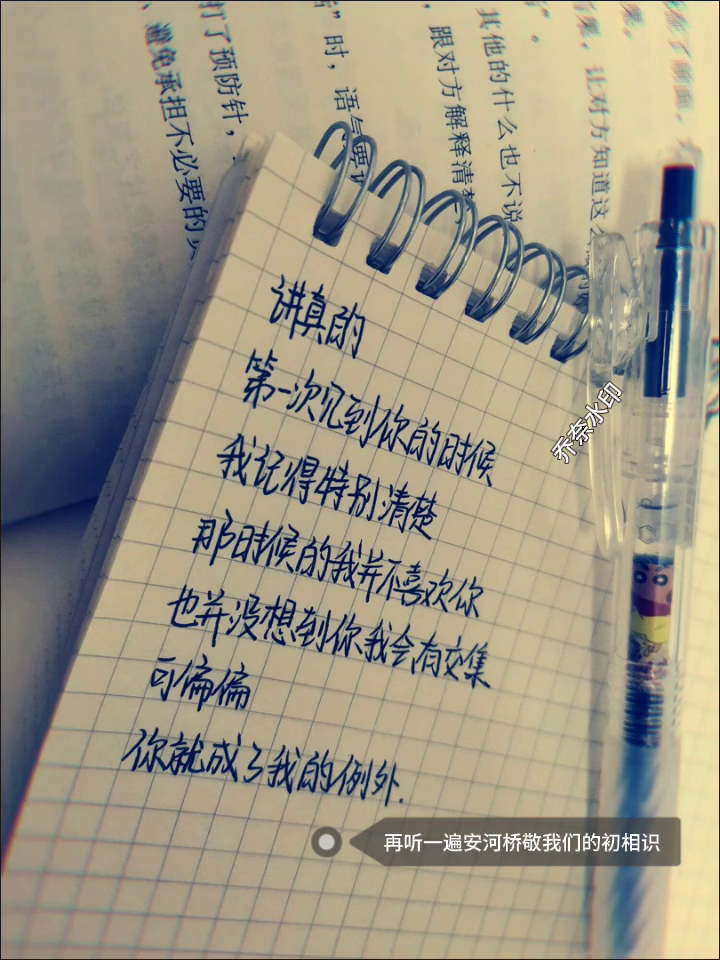 讲真的
第一次见到你的时候
我记得特别清楚
那时候的我并不喜欢你
也并没想到你我会有交集
可偏偏
你就成了我的例外.
再听一遍安河桥敬我们的初相识
乔奈水印
果。
后果，让对方知道这
其他的什么也不说
”。
跟对方解释清楚
”时，语气要
打了预防针，
避免承担不必要的